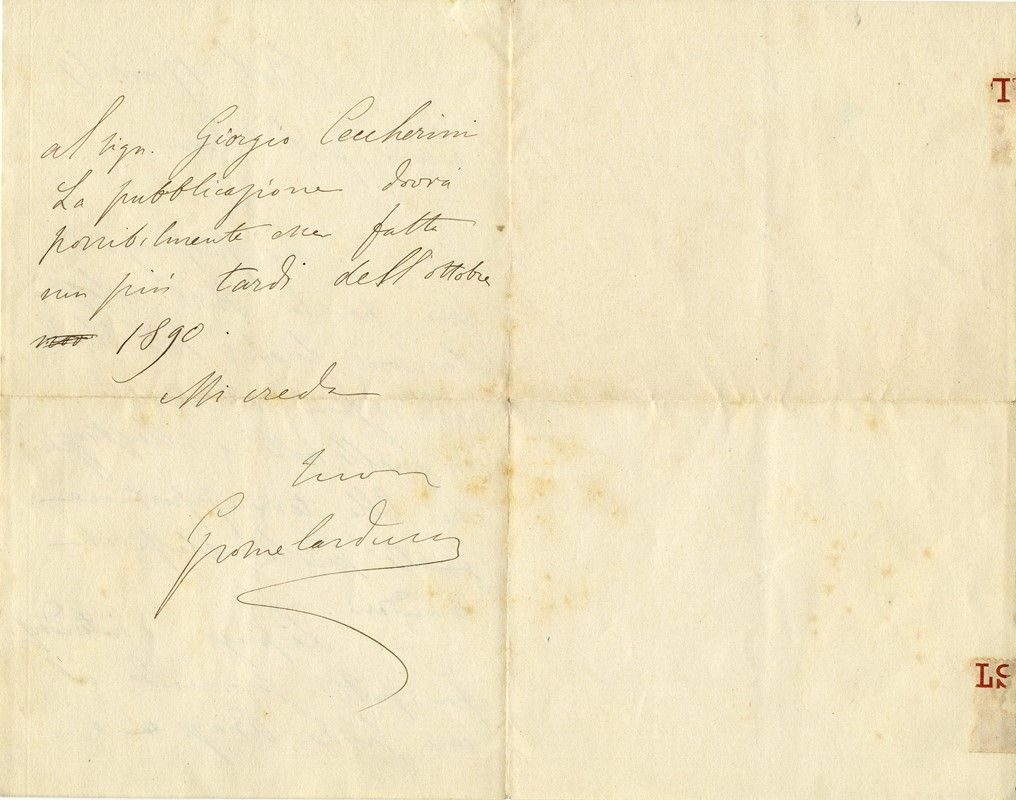 al sign. Giorgio Ceccherini
La pubblicazione dovrà
possibilmente esser fatta
non più tardi dell'ottobre
1890.
Mi creda
suo
Giosue Carducci
T
LS